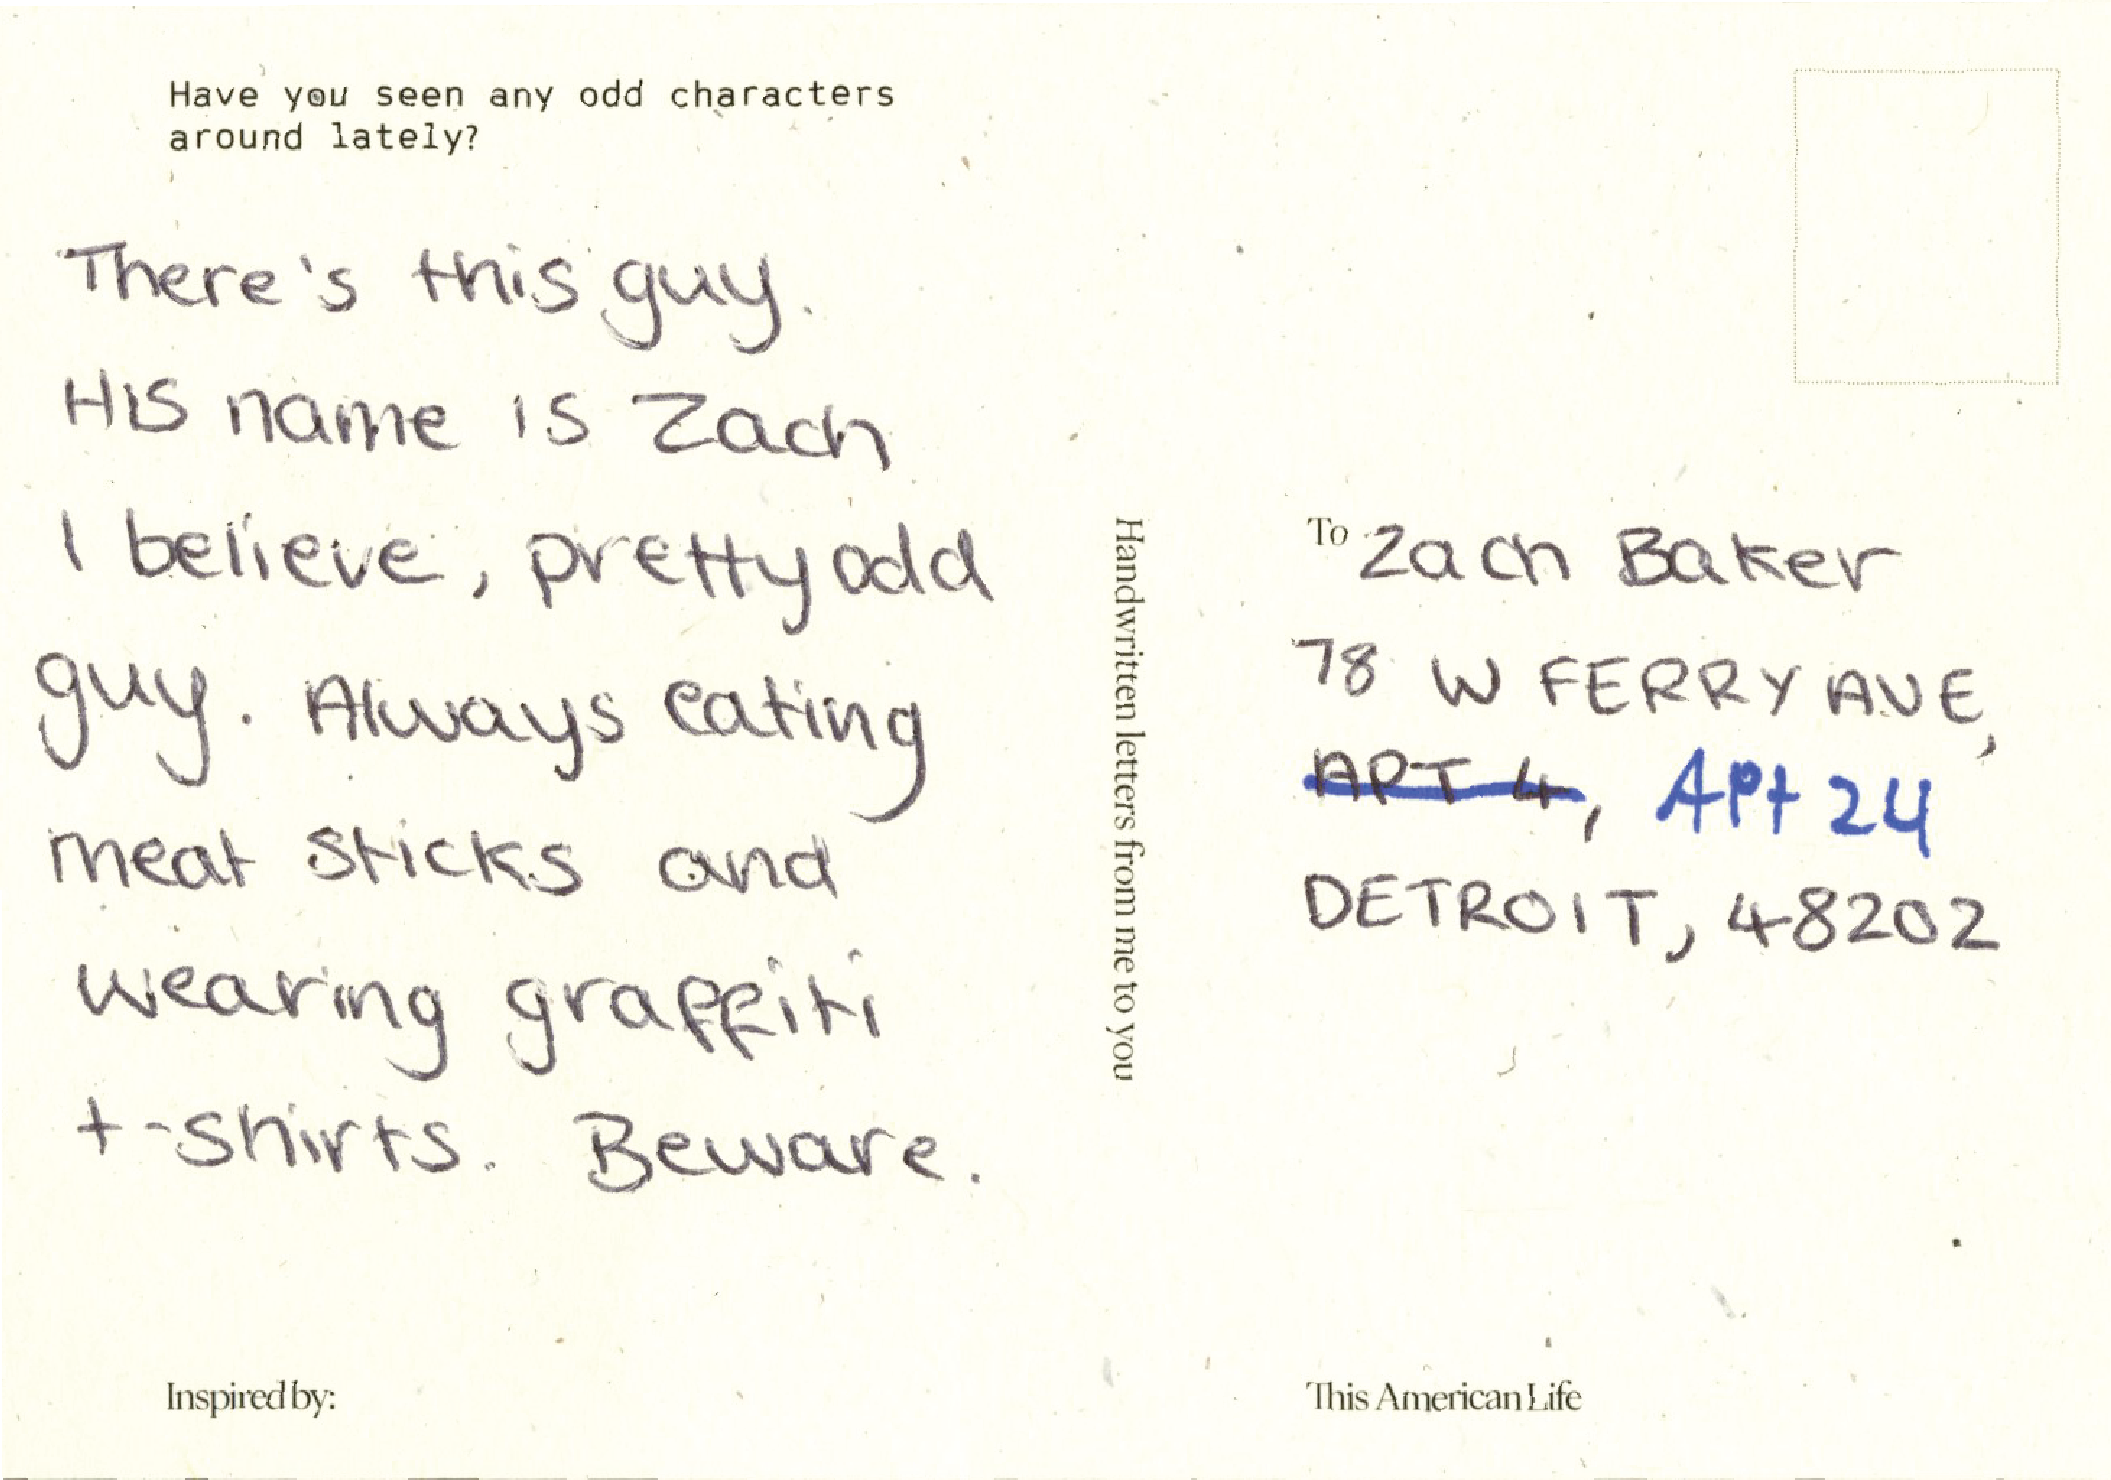 Have you seen any odd characters
around lately?
There's this guy.
His name is Zach
I believe, pretty odd
guy. Always eating
meat sticks and
wearing graffiti
t-shirts. Beware.
Inspired by:
Handwritten letters from me to you
To Zach Baker
78 W FERRY AVE,
APT 4, Apt 24
DETROIT, 48202
This American Life